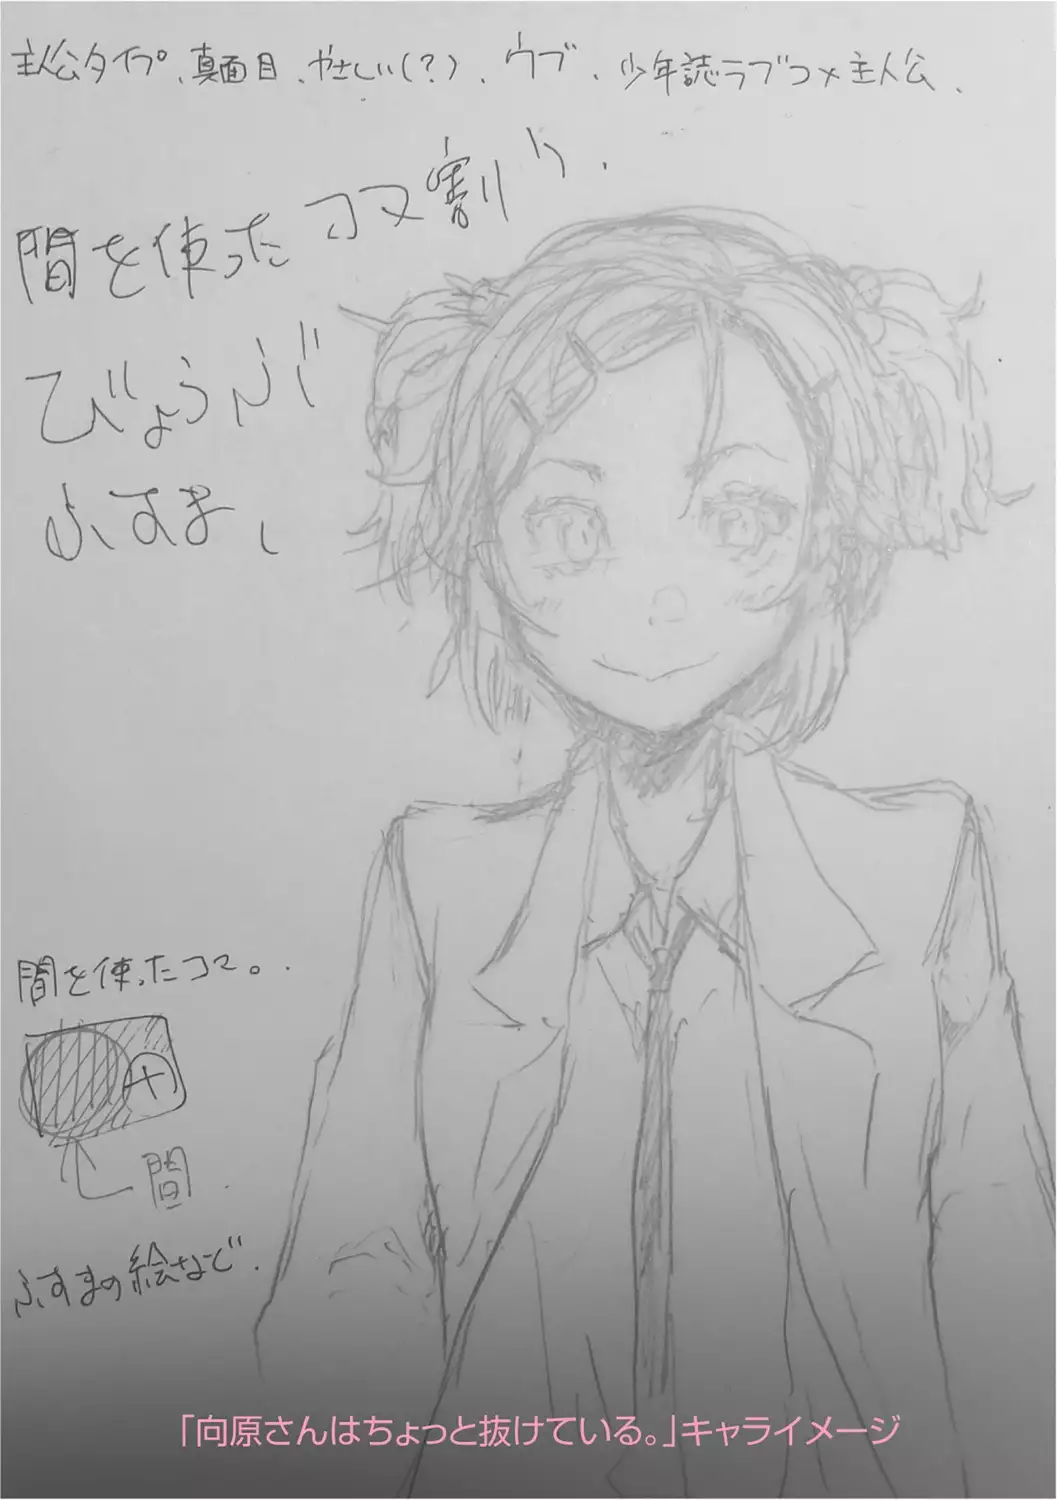 主人公タイプ、真面目、やさしい(?)、ウブ、少年誌ラブコメ主人公、
間を使ったコマ割り、
びょうぶ
ふすま、
間を使ったコマ。
間
ふすまの絵など、
「向原さんはちょっと抜けている。」キャライメージ